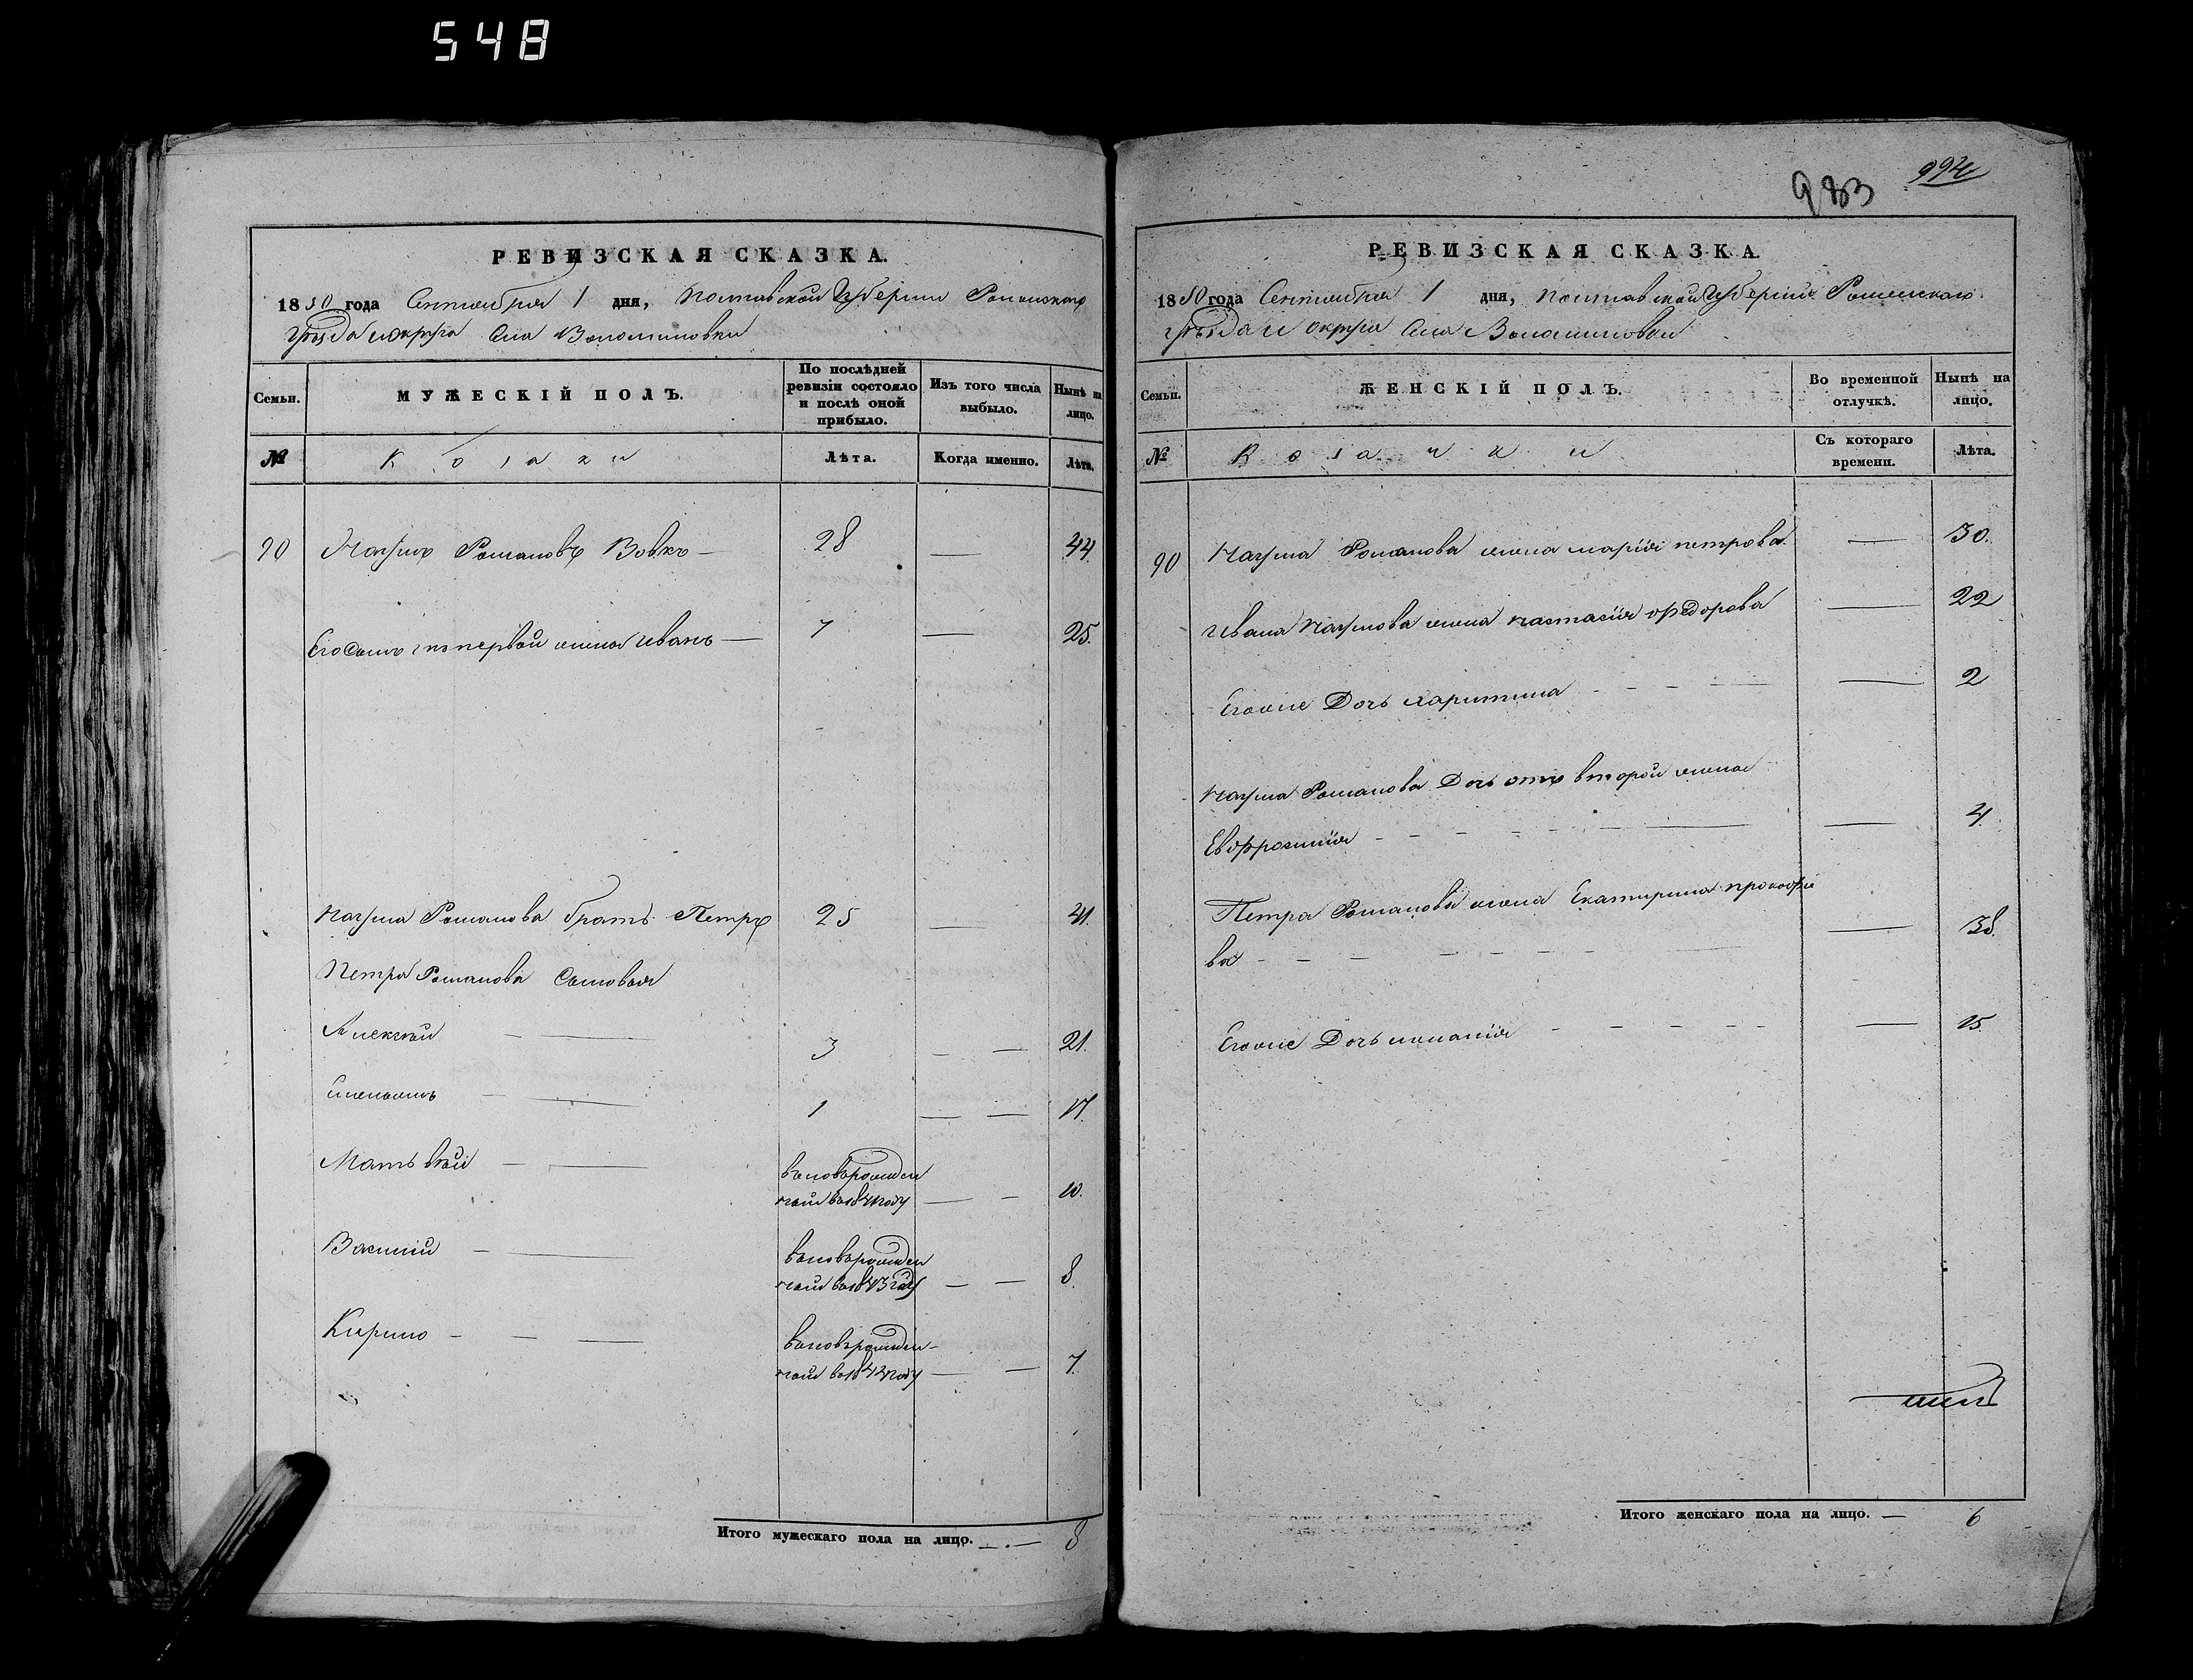 548
РЕВИЗСКАЯ СКАЗКА.
1850 года Сентября 1 дня, Полтавской Губерніи Роменскаго
Уѣзда и округа Села Волошиновки
Семьи. МУЖЕСКІЙ ПОЛЪ. По послѣдней ревизіи состояло и послѣ оной прибыло. Изъ того числа выбыло. Нынѣ на лицо.
№ Козаки Лѣта. Когда именно. Лѣта.
90 Наумъ Романовъ Вовкъ — 28 — 44.
Его Сынъ изъ первой жены Иванъ — 7 — 25.
Наума Романова братъ Петръ 25 — 41.
Петра Романова Сыновья
Алексѣй — 3 — — 21.
Емельянъ — — 1 — — 17.
Матвѣй — — вновьрожден
ный въ 184 году — — 10.
Василій — — вновьрожден
ный въ 1843 году — — 8.
Кирило — — — вновьрожден-
ный въ 184 году — — 7.
Итого мужескаго пола на лицо. — . — 8
983 994
РЕВИЗСКАЯ СКАЗКА.
1850 года Сентября 1 дня, Полтавской Губерніи Роменскаго
Уѣзда и округа Села Волошиновки
Семьи. ЖЕНСКІЙ ПОЛЪ. Во временной отлучкѣ. Нынѣ на лицо.
№ Козачки Съ котораго времени. Лѣта.
90 Наума Романова жена марія петрова — 30.
Ивана Наумова жена настасія фѣдорова — 22
Егоже Дочь харитина - - - — — 2
Наума Романова Дочь отъ второй жены
Евфросинія - - - - - - — — 4.
Петра Романова жена Екатирина прокофіе
ва - - - - - - - — — 38.
Егоже Дочь меланія - - - - - — 15
Итого женскаго пола на лицо. — 6